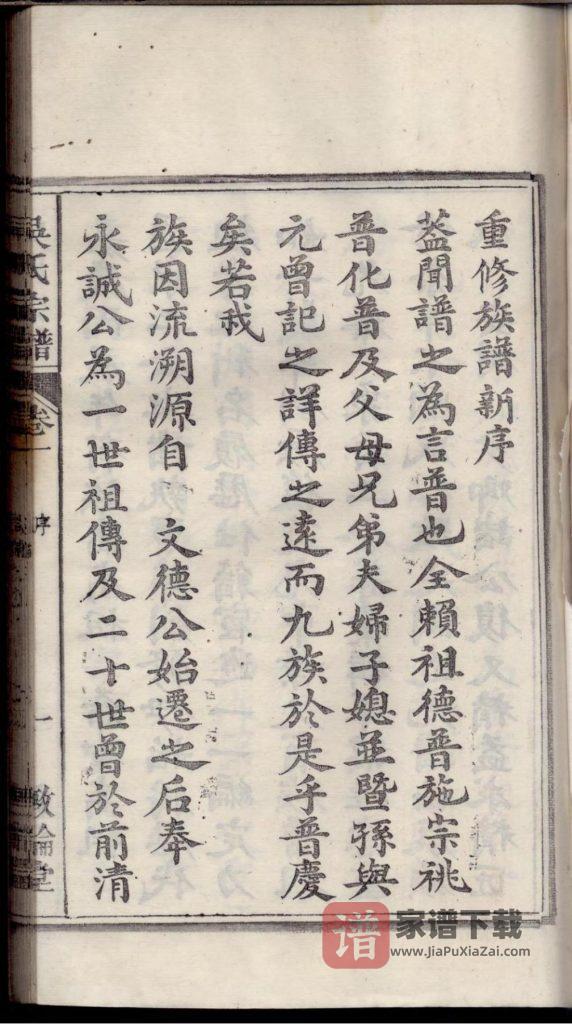 重修族譜新序
蓋聞譜之為言普也全賴祖德普施宗祧
普化普及父母兄弟夫婦子媳並暨孫與
元曾記之詳傳之遠而九族於是乎普慶
矣若我
族因流溯源自 文德公始遷之后奉
永誠公為一世祖傳及二十世曾於前清
吳氏宗譜 卷一 序 一 敦倫堂
谱 家谱下载
www.JiaPuXiaZai.com